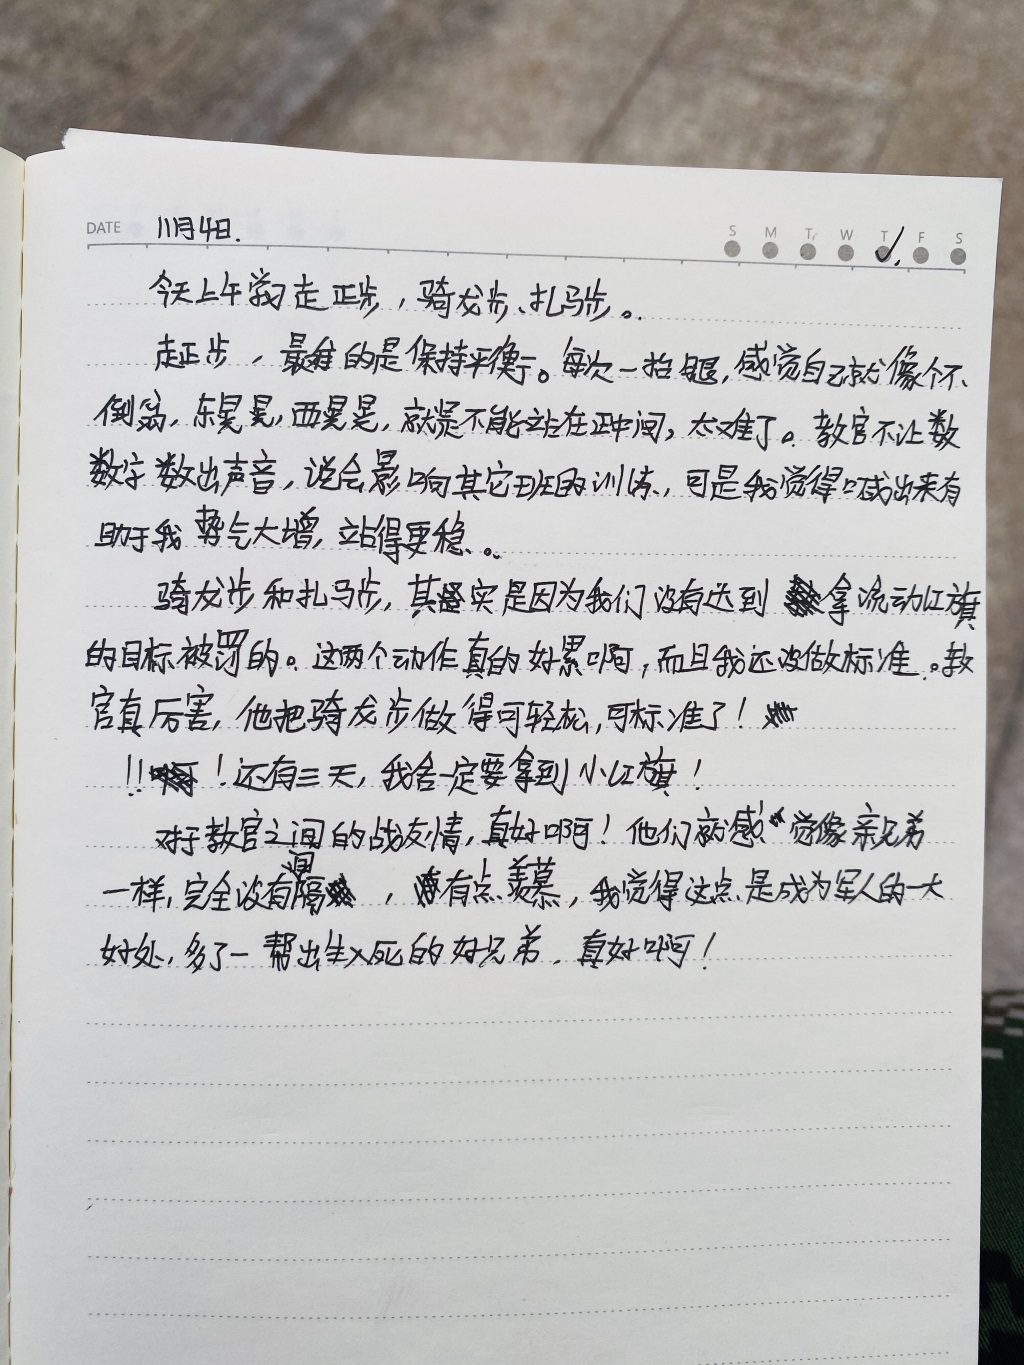 DATE 11月4日.
S M T W T F S
今天上午学习走正步，骑龙步、扎马步。
走正步，最难的是保持平衡。每次一抬腿，感觉自己就像个不
倒翁，东晃晃，西晃晃，就是不能站在正中间，太难了。教官不让数
数字数出声音，说会影响其它班的训练，可是我觉得喊出来有
助于我势气大增，站得更稳。
骑龙步和扎马步，其实是因为我们没有达到拿流动红旗
的目标被罚的。这两个动作真的好累啊，而且我还没做标准。教
官真厉害，他把骑龙步做得可轻松，可标准了！
!! ！还有三天，我舍一定要拿到小红旗！
对于教官之间的战友情，真好啊！他们就感觉像亲兄弟
一样，完全没有隔阂，有点羡慕，我觉得这点是成为军人的一大
好处，多了一帮出生入死的好兄弟，真好啊！